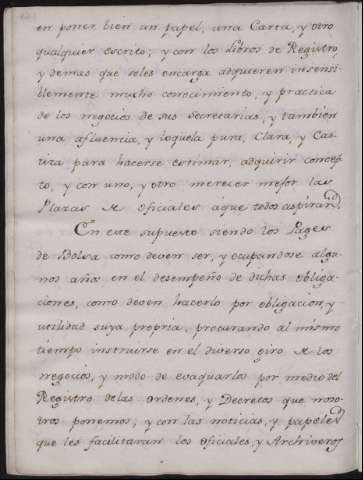 en poner bien un papel, una Carta, y otro
qualquier escrito; y con los libros de Registro,
y demas que seles encarga adquieren insensi-
blemente mucho conocimiento, y practica
de los negocios de sus Secretarias, y tambien
una afluencia, y loquela pura, Clara, y Cas-
tiza para hacerse estimar, adquirir concep-
to, y con uno, y otro merecer mejor las
Plazas de Oficiales aque todos aspiran.
En este supuesto siendo los Pages
de Bolsa como deven ser, y ocupandose algu-
nos años en el desempeño de dichas obliga-
ciones, como deven hacerlo por obligacion, y
utilidad suya propria, procurando al mismo
tiempo instruirse en el diverso giro de los
negocios, y modo de evaquarlos por medio del
Registro de las ordenes, y Decretos que noso-
tros ponemos, y con las noticias, y papeles
que les facilitaran los Oficiales, y Archiveros